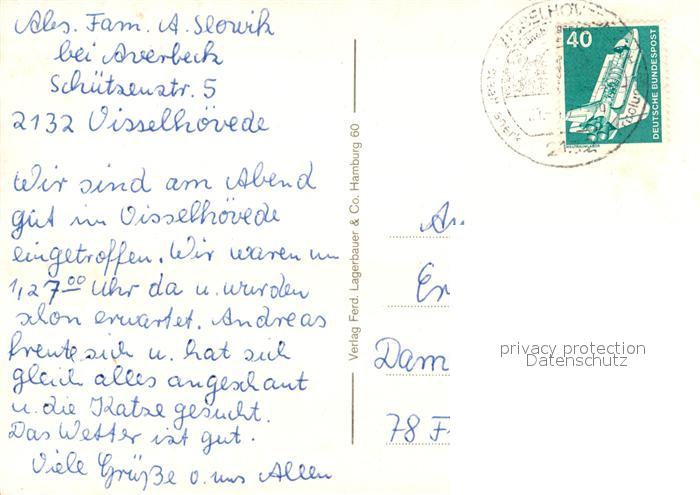 Abs. Fam. A. Slowik
bei Averbeck
Schützenstr. 5
2132 Visselhövede
Wir sind am Abend
gut in Visselhövede
eingetroffen. Wir waren um
Uhr da u. wurden
schon erwartet. Andreas
freute sich u. hat sich
gleich alles angeschaut
u. die Katze gesucht.
Das Wetter ist gut.
Viele Grüße v. uns Allen
Verlag Ferd. Lagerbauer & Co. Hamburg 60
40
DEUTSCHE BUNDESPOST
WELTRAUMLABOR
An
Dam
78 F
privacy protection
Datenschutz